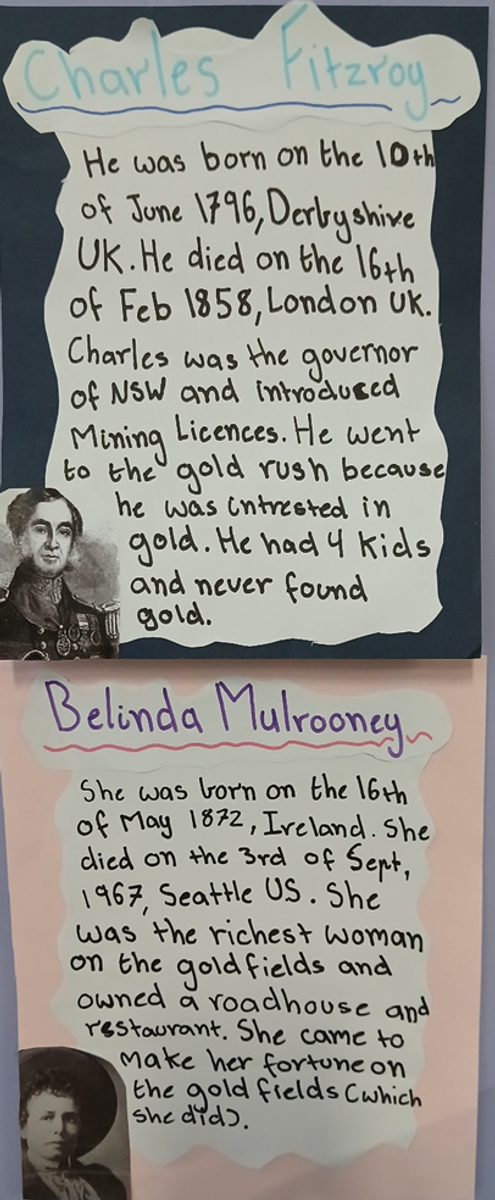 Charles Fitzroy
He was born on the 10th
of June 1796, Derbyshire
UK. He died on the 16th
of Feb 1858, London UK.
Charles was the governor
of NSW and introduced
Mining Licences. He went
to the gold rush because
he was intrested in
gold. He had 4 kids
and never found
gold.
Belinda Mulrooney
She was born on the 16th
of May 1872, Ireland. She
died on the 3rd of Sept,
1967, Seattle US. She
was the richest woman
on the goldfields and
owned a roadhouse and
restaurant. She came to
make her fortune on
the gold fields (which
she did).